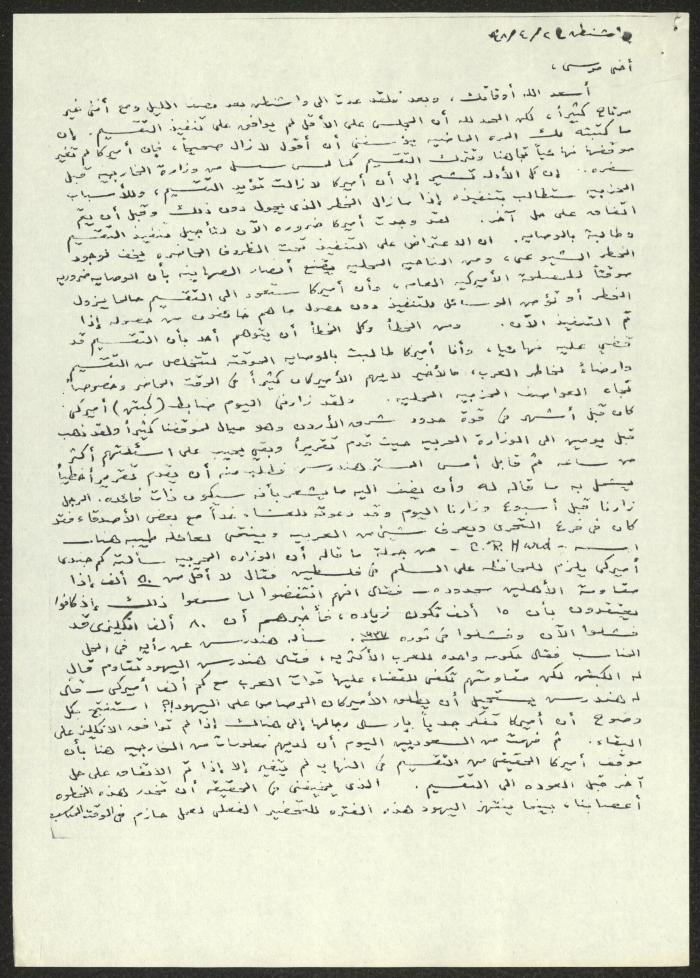 واشنطن ٢ / ٤ / ٤٨
أخي موسى،
أسعد الله أوقاتك، وبعد فلقد عدت الى واشنطن بعد نصف الليل ومع أنني غير
مرتاح كثيراً، لكن الحمد لله أن المجلس على الأقل لم يوافق على تنفيذ التقسيم. إن
ما كتبته لك المره الماضيه يؤسفني أن أقول لازال صحيحاً، فإن أميركا لم تغير
موقفها نهائياً تجاهنا وتترك التقسيم كما من وزارة الخارجيه قبل
سفره. إن كل الأدله تشير إلى أن أميركا لازالت تؤيد التقسيم، وللأسباب
الحزبيه ستطالب بتنفيذه إذا ما زال الخطر الذي يحول دون ذلك وقبل أن يتم
اتفاق على حل آخر. لقد وجدت أميركا ضروره الآن لتأجيل تنفيذ التقسيم
وطالبة بالوصايه. ان الاعتراض على التنفيذ تحت الظروف الحاضره لوجود
الخطر الشيوعي، ومن الناحيه المحليه يقنع أنصار الصهاينه بأن الوصايه ضروريه
موقتاً للمصلحة الأميركيه العامه، وأن أميركا ستعود الى التقسيم حالما يزول
الخطر أو تؤمن الوسائل للتنفيذ دون حصول ما هم خائفون من حصوله إذا
تم التنفيذ الآن. ومن الخطأ وكل الخطأ أن يتوهم أحد بأن التقسيم قد
قضي عليه نهائيا، وأن أميركا طالبت بالوصايه الموقته لتتخلص من التقسيم
وارضاءً لخاطر العرب، فالأخير لا يهم الأميركان كثيراً في الوقت الحاضر وخصوصاً
تجاه العواصف الحزبيه المحليه. ولقد زارني اليوم ضابط (كبتن) أميركي
كان قبل أشهر في قوة حدود شرق الأردن وهو ميال لموقفنا كثيراً ولقد ذهب
قبل يومين الى الوزارة الحربيه حيث قدم تقريراً وبقي يجيب على اسئلتهم أكثر
من ساعه ثم قابل أمس المستر هندرسن فطلب منه أن يقدم تقريراً خطياً
يتصل به ما قاله له وأن يضف اليه ما يشعر بأنه سيكون ذات فائده. الرجل
زارنا قبل أسبوع وزارنا اليوم وقد دعوته للعشاء غداً مع بعض الأصدقاء فقد
كان في فرع التحري ويعرف شيء من العربيه وينتمي لعائله طيبه هنا.
اسمه - C. R. Hurd - من جملة ما قاله أن الوزاره الحربيه سألته كم جندي
أميركي يلزم للمحافظه على السلم في فلسطين فقال لا أقل من ٨٠ ألف إذا
مقاومة الأهلين محدوده - فقال انهم انتفضوا لما سمعوا ذلك إذ كانوا
يعتقدون بأن ١٥ ألف تكون زياده، فأخبرهم أن ٨٠ ألف انكليزي قد
فشلوا الآن وفشلوا في ثوره ١٩٣٧. سأله هندرسن عن رأيه في الحل
المناسب فقال حكومه واحده للعرب الأكثريه، فقال هندرسن اليهود تقاوم قال
له الكبتن لكن مقاومتهم تكفي للقضاء عليها قوات العرب مع كم ألف أميركي - قال
له هندرسن يستحيل أن يطلق الأميركان الرصاص على اليهود!؟ استنتج بكل
وضوح أن أميركا تفكر جدياً بإرسال رجالها إلى هنالك إذا لم توافق الانكليز على
البقاء. ثم فهمت من السعوديين اليوم أن لديهم معلومات من الخارجيه هنا بأن
موقف أميركا الحقيقي من التقسيم في النهايه لم يتغير إلا إذا تم الاتفاق على حل
آخر قبل العوده الى التقسيم. الذي يخيفني في الحقيقه أن تخدر هذه الخطوه
أعصابنا، بينما ينتهز اليهود هذه الفتره للتحضير الفعلي لعمل حازم في الوقت المناسب